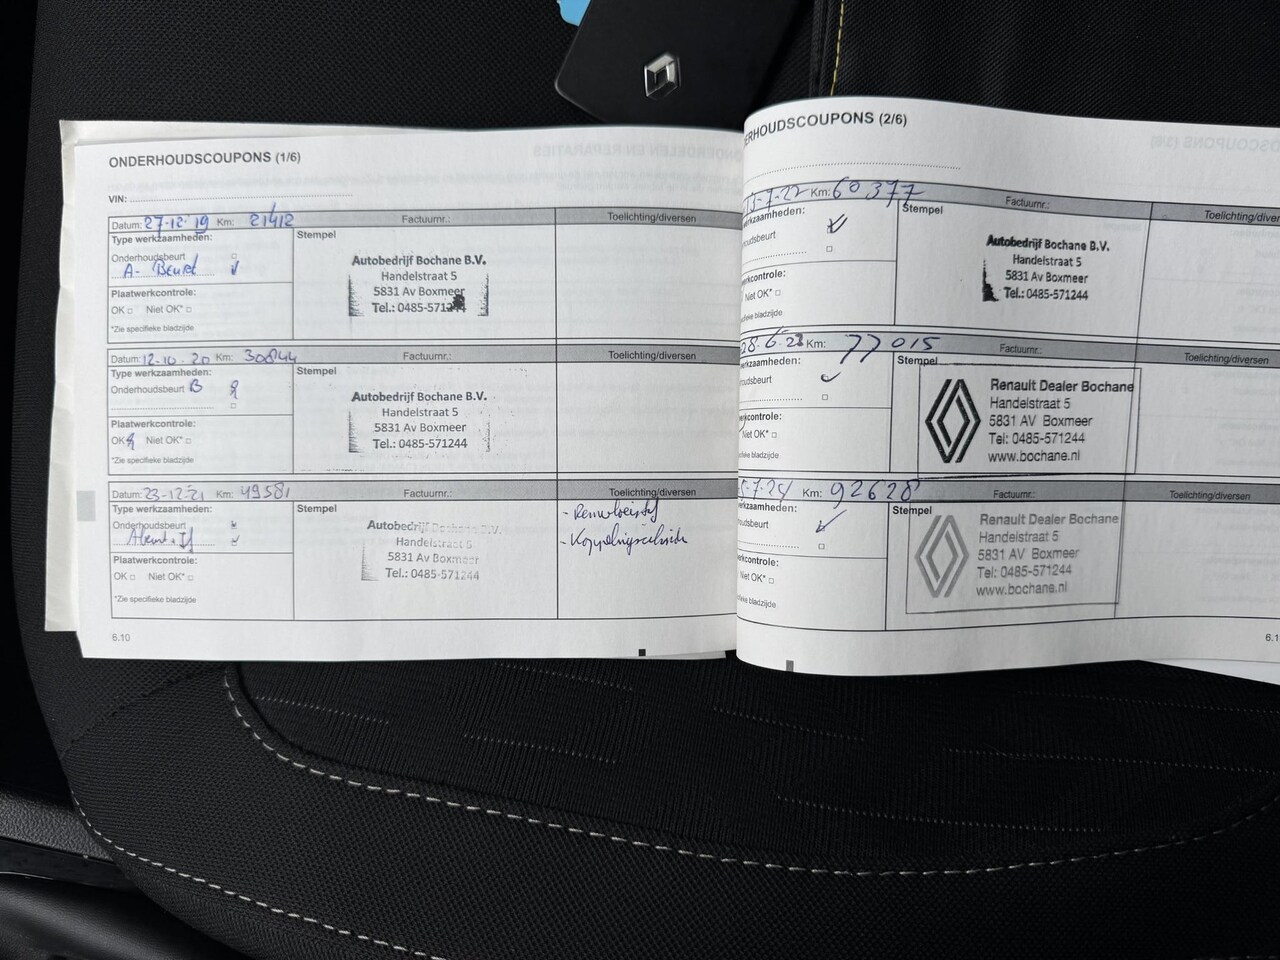 ONDERHOUDSCOUPONS (1/6)
VIN:
Datum: 27-12-19 Km: 21412 Factuurnr.: Toelichting/diversen
Type werkzaamheden: Stempel
Onderhoudsbeurt
A- Beurt
Plaatwerkcontrole:
OK Niet OK*
*Zie specifieke bladzijde
Autobedrijf Bochane B.V.
Handelstraat 5
5831 Av Boxmeer
Tel.: 0485-571244
Datum: 12-10-20 Km: 30844 Factuurnr.: Toelichting/diversen
Type werkzaamheden: Stempel
Onderhoudsbeurt B
Plaatwerkcontrole:
OK Niet OK*
*Zie specifieke bladzijde
Autobedrijf Bochane B.V.
Handelstraat 5
5831 Av Boxmeer
Tel.: 0485-571244
Datum: 23-12-21 Km: 49581 Factuurnr.: Toelichting/diversen
Type werkzaamheden: Stempel
Onderhoudsbeurt
Plaatwerkcontrole:
OK Niet OK*
*Zie specifieke bladzijde
Autobedrijf Bochane B.V.
Handelstraat 5
5831 Av Boxmeer
Tel.: 0485-571244
- Remvloeistof
6.10
ERHOUDSCOUPONS (2/6)
-7-22 Km: 60377 Factuurnr.: Toelichting/diver
erkzaamheden: Stempel
oudsbeurt
erkcontrole:
Niet OK*
specifieke bladzijde
Autobedrijf Bochane B.V.
Handelstraat 5
5831 Av Boxmeer
Tel.: 0485-571244
28-6-23 Km: 77015 Factuurnr.: Toelichting/diversen
erkzaamheden: Stempel
houdsbeurt
erkcontrole:
Niet OK*
specifieke bladzijde
Renault Dealer Bochane
Handelstraat 5
5831 AV Boxmeer
Tel: 0485-571244
www.bochane.nl
-7-24 Km: 92628 Factuurnr.: Toelichting/diversen
erkzaamheden: Stempel
oudsbeurt
erkcontrole:
Niet OK*
fieke bladzijde
Renault Dealer Bochane
Handelstraat 5
5831 AV Boxmeer
Tel: 0485-571244
www.bochane.nl
6.1